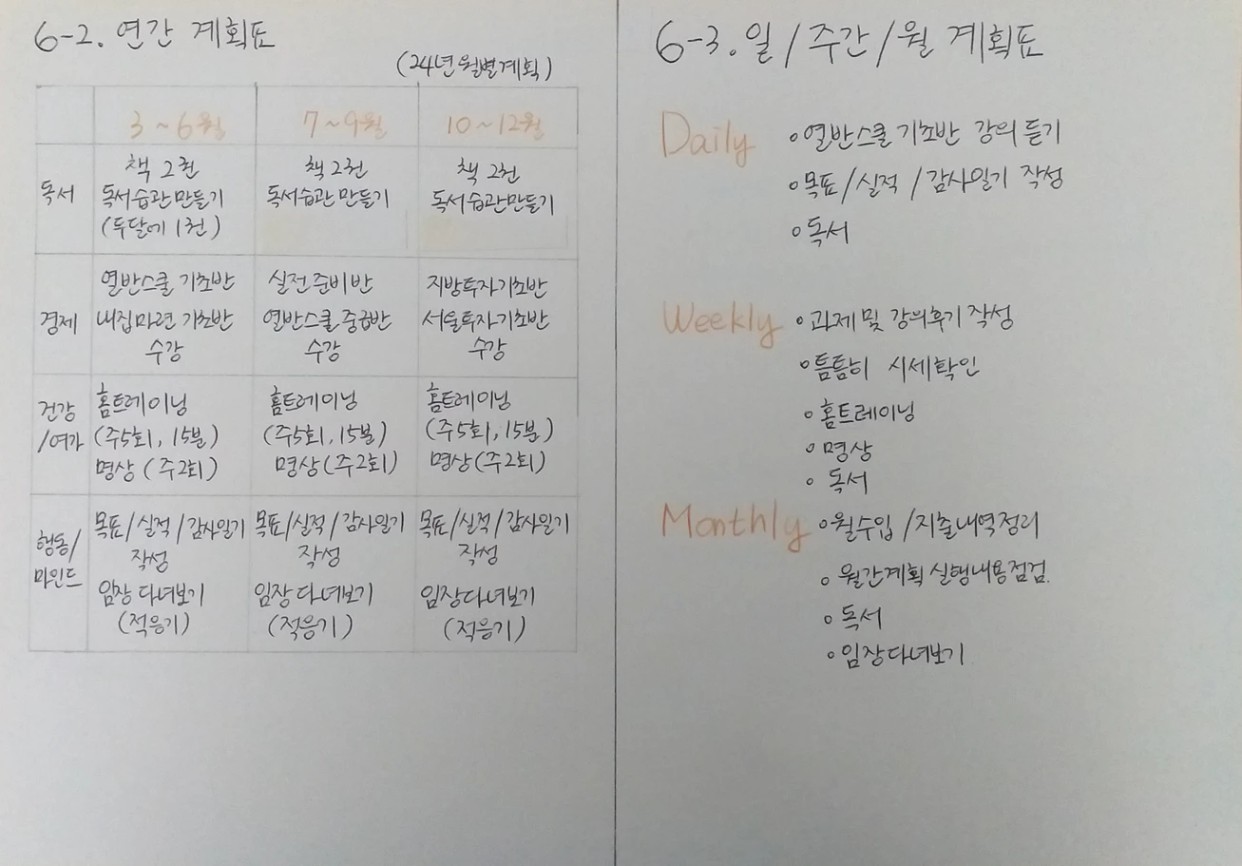 6-2. 연간 계획표
(24년 월별계획)
3~6월 7~9월 10~12월
독서
책 2권
독서습관 만들기
(두달에 1권)
책 2권
독서습관 만들기
책 2권
독서습관만들기
경제
열반스쿨 기초반
내집마련 기초반
수강
실전 준비반
열반스쿨 중급반
수강
지방투자기초반
서울투자기초반
수강
건강
/여가
홈트레이닝
(주5회, 15분)
명상 (주2회)
홈트레이닝
(주5회, 15분)
명상(주2회)
홈트레이닝
(주5회, 15분)
명상(주2회)
행동/
마인드
목표/실적/감사일기
작성
임장 다녀보기
(적응기)
목표/실적/감사일기
작성
임장다녀보기
(적응기)
목표/실적/감사일기
작성
임장다녀보기
(적응기)
6-3. 일/주간/월 계획표
Daily
∘열반스쿨 기초반 강의 듣기
∘목표/실적/감사일기 작성
∘독서
Weekly
∘과제 및 강의후기 작성
∘틈틈히 시세확인
∘홈트레이닝
∘명상
∘독서
Monthly
∘월수입/지출내역정리
∘월간계획 실행내용점검.
∘독서
∘임장다녀보기